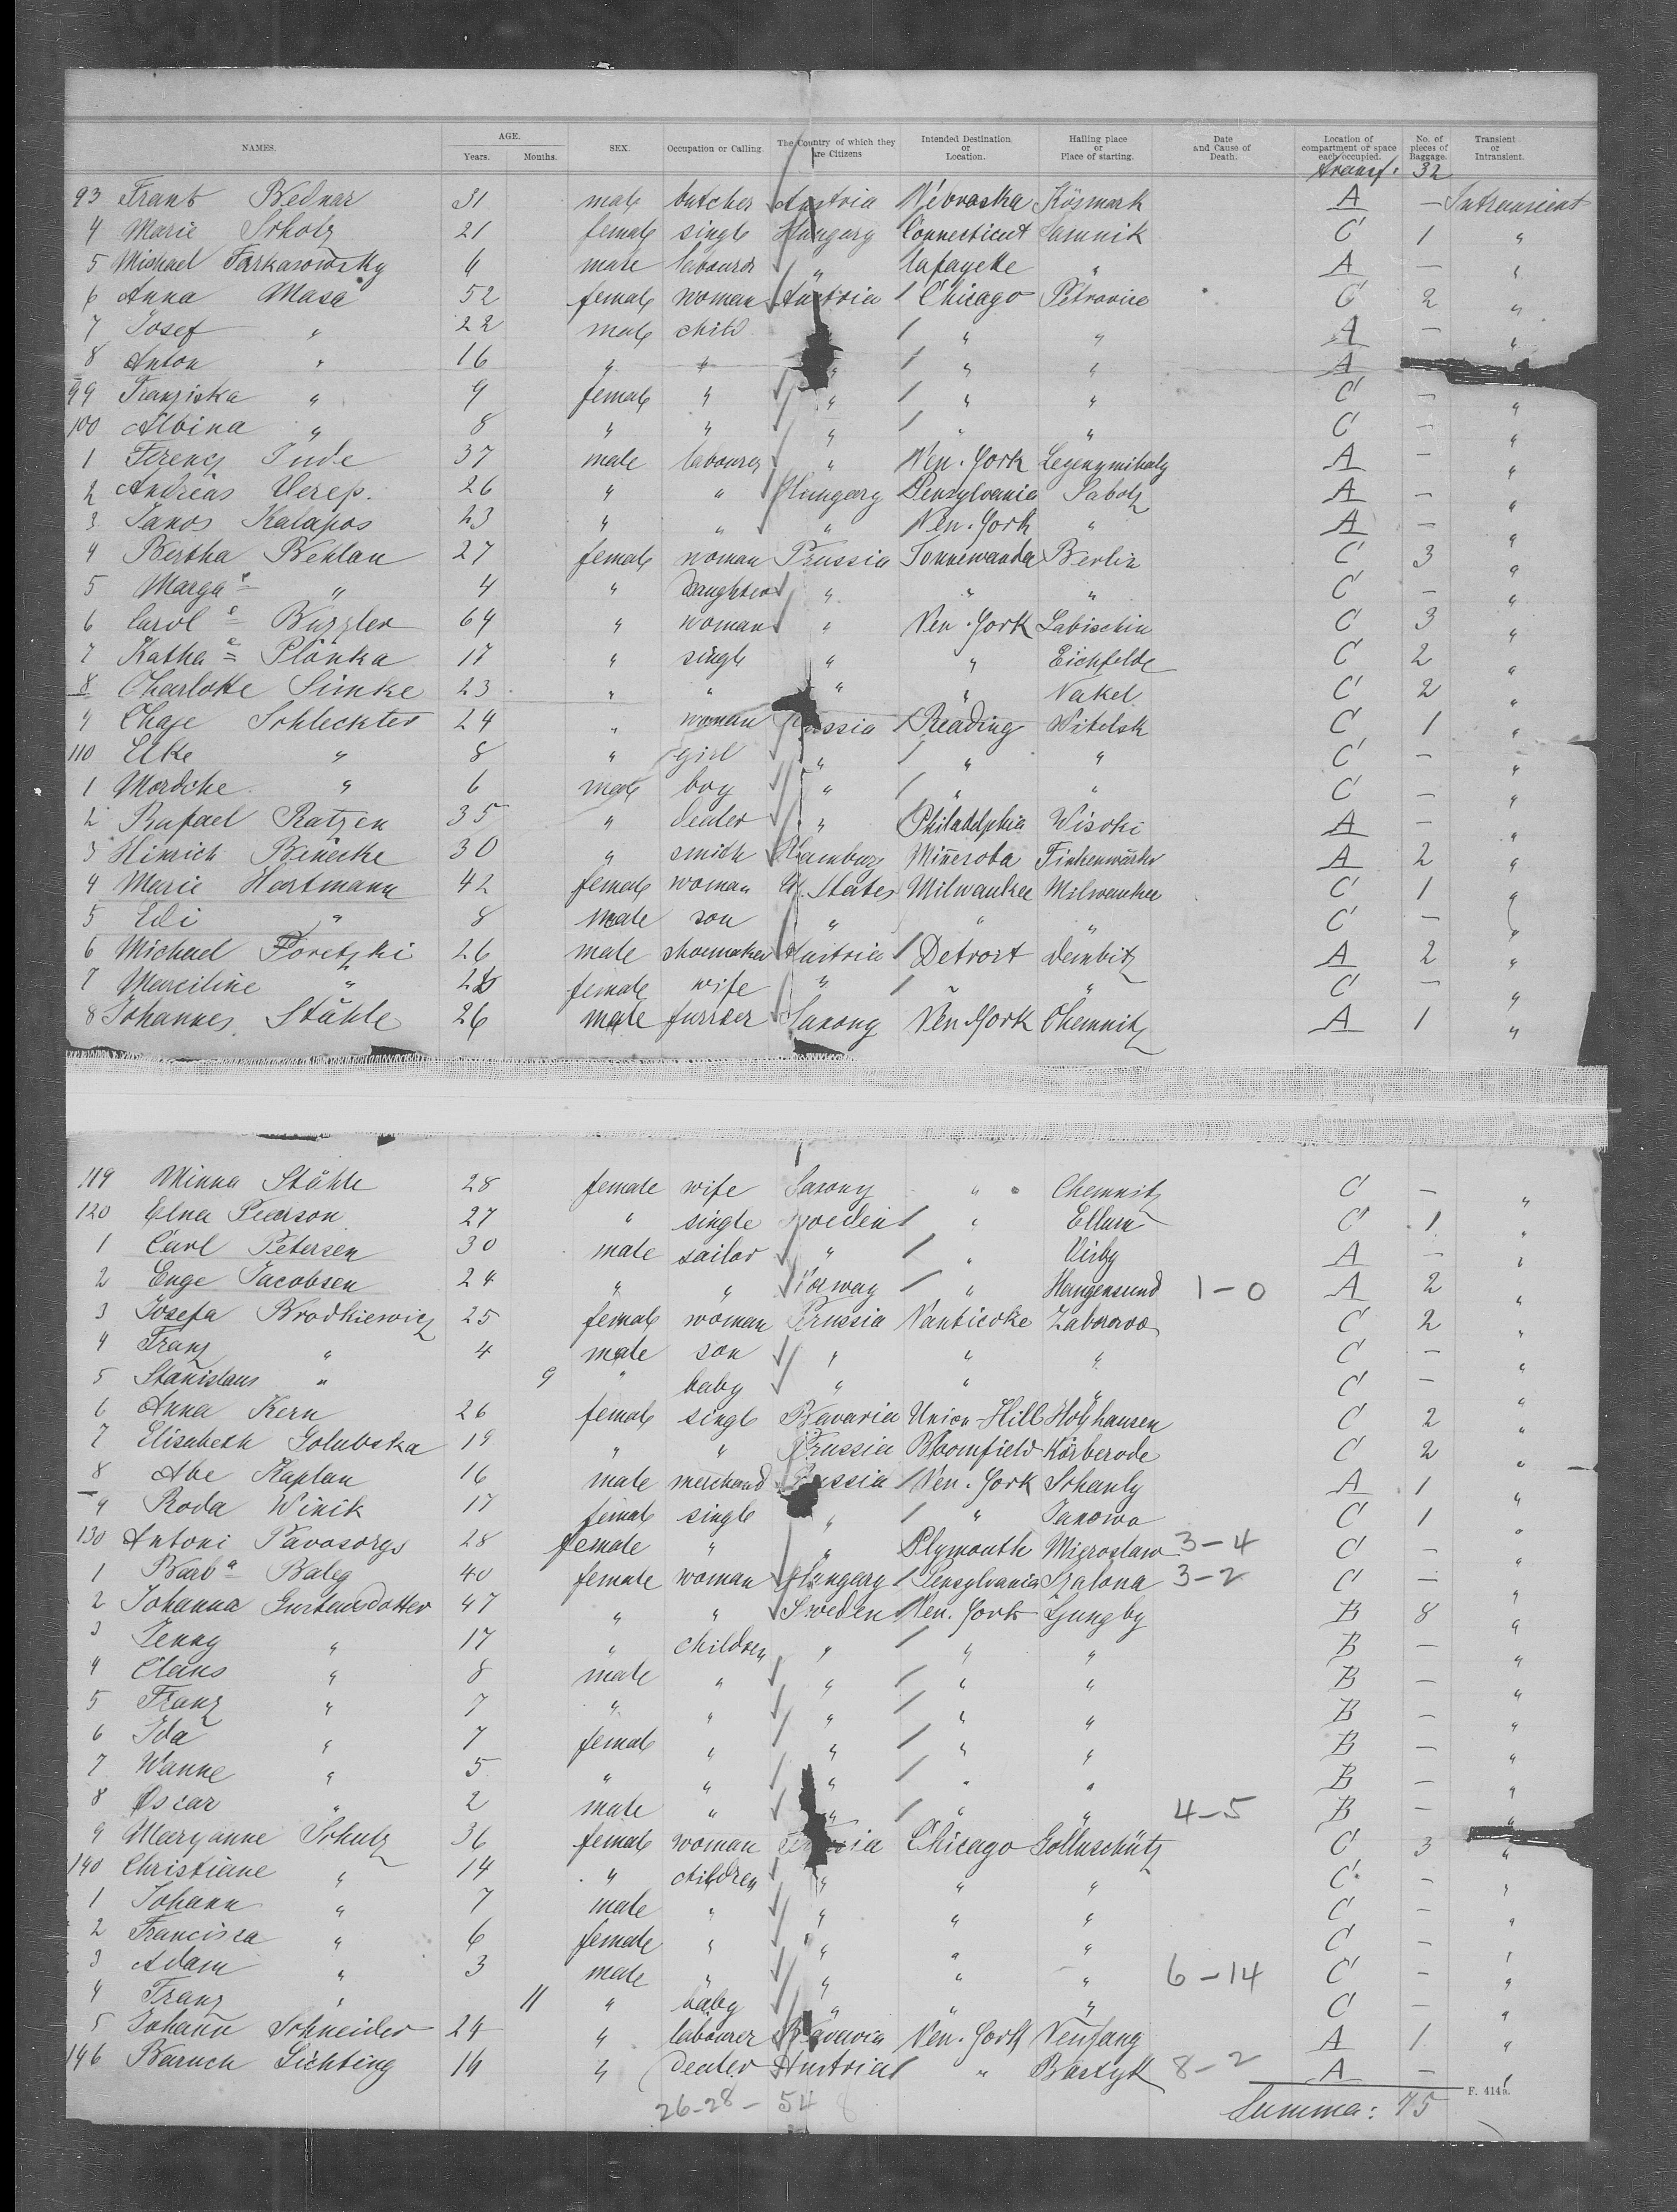 NAMES. AGE. Years. Months. SEX. Occupation or Calling. The Country of which they are Citizens Intended Destination or Location. Hailing place or Place of starting. Date and Cause of Death. Location of compartment or space each occupied. No. of pieces of Baggage. Transient or Intransient.
transf. 32
93 Bednar 31 male butcher Austria Nebraska Käsmark A — Intransient
4 Marie Scholz 21 female single Hungary Connecticut Jamnik C 1 "
5 Michael Farkasowsky male labourer " Lafayette " A — "
6 Anna Masa 52 female woman Austria Chicago Petrovice C 2 "
7 Josef " 22 male child " " A — "
8 Anton " 16 " " " " " A
99 Franziska " 9 female " " " " C — "
100 Albina " 8 " " " " " C — "
1 Ferencz Jude 37 male labourer " New-York Legenymihaly A — "
2 Andreas Verep. 26 " " Hungary Pensylvania Sabolz A — "
3 Janos Kalapos 23 " " " New-York " A — "
4 Bertha Behlau 27 female woman Prussia Tonnewanda Berlin C 3 "
5 Marga " 4 " daughter " " " C — "
6 Carol Buzzler 64 " woman " New-York Labischin C 3 "
7 Katha Plonka 17 " single " " Eichfelde C 2 "
8 Charlotte Simke 23 " " " " Nakel C 2 "
9 Chaje Schlechter 24 " woman Russia Reading Witebsk C 1 "
110 Elke " 8 " girl " " " C — "
1 Mordche " 6 male boy " " " C — "
2 Rafael Ratzen 35 " dealer " Philadelphia Wisoki A — "
3 Hinrich Benecke 30 " smith Hamburg Minesota Finkenwärder A 2 "
4 Marie Hartmann 42 female woman U. States Milwaukee Milwaukee C 1 "
5 Edi " 8 male son " " " C — "
6 Michael Foretzki 26 male shoemaker Austria Detroit Dembitz A 2 "
7 Marciline " female wife " " " C — "
8 Johannes Stähle 26 male furrier Saxony New York Chemnitz A 1 "
119 Minna Stähle 28 female wife Saxony " Chemnitz C — "
120 Elna Pearson 27 " single Sweden " Ellum C 1 "
1 Carl Petersen 30 male sailor " " Visby A — "
2 Enge Jacobsen 24 " " Norway " Haugensund 1-0 A 2 "
3 Josefa Brodkiewicz 25 female woman Prussia Nanticoke Zaborowo C 2 "
4 Franz " 4 male son " " " C — "
5 Stanislaus " 9 " baby " " " C — "
6 Anna Kern 26 female single Bavaria Union-Hill Holzhausen C 2 "
7 Elisabeth Golubska 19 " " Prussia Bloomfield Körberode C 2 "
8 Abe Kaplan 16 male merchand Russia New-York Schanly A 1 "
9 Roda Winik 17 female single " " Janowo C 1 "
130 Antoni Pavosorgs 28 female " " Plymouth Migroslaw 3-4 C — "
1 Barba Baleg 40 female woman Hungary Pensylvania Szalona 3-2 C — "
2 Johanna Gustausdotter 47 " " Sweden New-York Ljungby B 8 "
3 Jenny " 17 " children " " " B — "
4 Claus " 8 male " " " " B — "
5 Franz " 7 " " " " " B — "
6 Ida " 7 female " " " " B — "
7 Wanne " 5 " " " " " B — "
8 Oscar " 2 male " " " " 4-5 B — "
9 Maryanne Schulz 36 female woman Prussia Chicago Golluschütz C 3 "
140 Christiane " 14 " children " " " C — "
1 Johann " 7 male " " " " C — "
2 Francisca " 6 female " " " " C — "
3 Adam " 3 male " " " " 6-14 C — "
4 Franz " 11 " baby " " " C — "
5 Johann Schneider 24 " labourer Bavaria New-York Neufang A 1 "
146 Baruch Lichting 14 " dealer Austria " Bartyk 8-2 A — "
26-28- 54 8
Summa: 75
F. 414a.